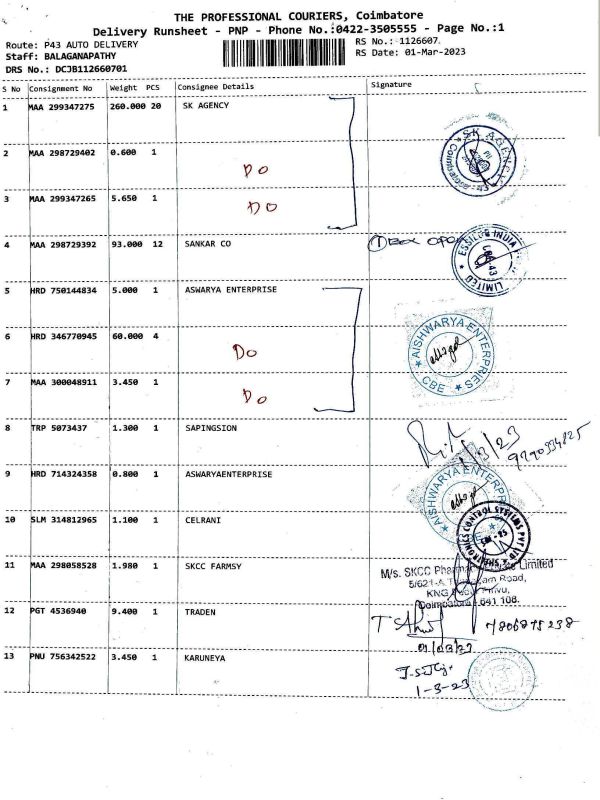 THE PROFESSIONAL COURIERS, Coimbatore
Delivery Runsheet - PNP - Phone No.:0422-3505555 - Page No.:1
Route: P43 AUTO DELIVERY
Staff: BALAGANAPATHY
DRS No.: DCJB112660701
RS No.:-1126607.
RS Date: 01-Mar-2023
S No Consignment No Weight PCS Consignee Details Signature
1 MAA 299347275 260.000 20 SK AGENCY
SK AGENCY
2 MAA 298729402 0.600 1 Do
3 MAA 299347265 5.650 1 Do
4 MAA 298729392 93.000 12 SANKAR CO
ESSILOR INDIA LIMITED
5 HRD 750144834 5.000 1 ASWARYA ENTERPRISE
6 HRD 346770945 60.000 4 Do
AISHWARYA ENTERPRISES CBE
7 MAA 300048911 3.450 1 Do
8 TRP 5073437 1.300 1 SAPINGSION
9 HRD 714324358 0.800 1 ASWARYAENTERPRISE
AISHWARYA ENTERPRISES
10 SLM 314812965 1.100 1 CELRANI
CONTROL SYSTEMS PVT
11 MAA 298058528 1.980 1 SKCC FARMSY
M/s. SKCC Limited
Road,
KNG
Coimbatore 641 108.
12 PGT 4536940 9.400 1 TRADEN
7806875238
01/03/23
13 PNU 756342522 3.450 1 KARUNEYA
1-3-23